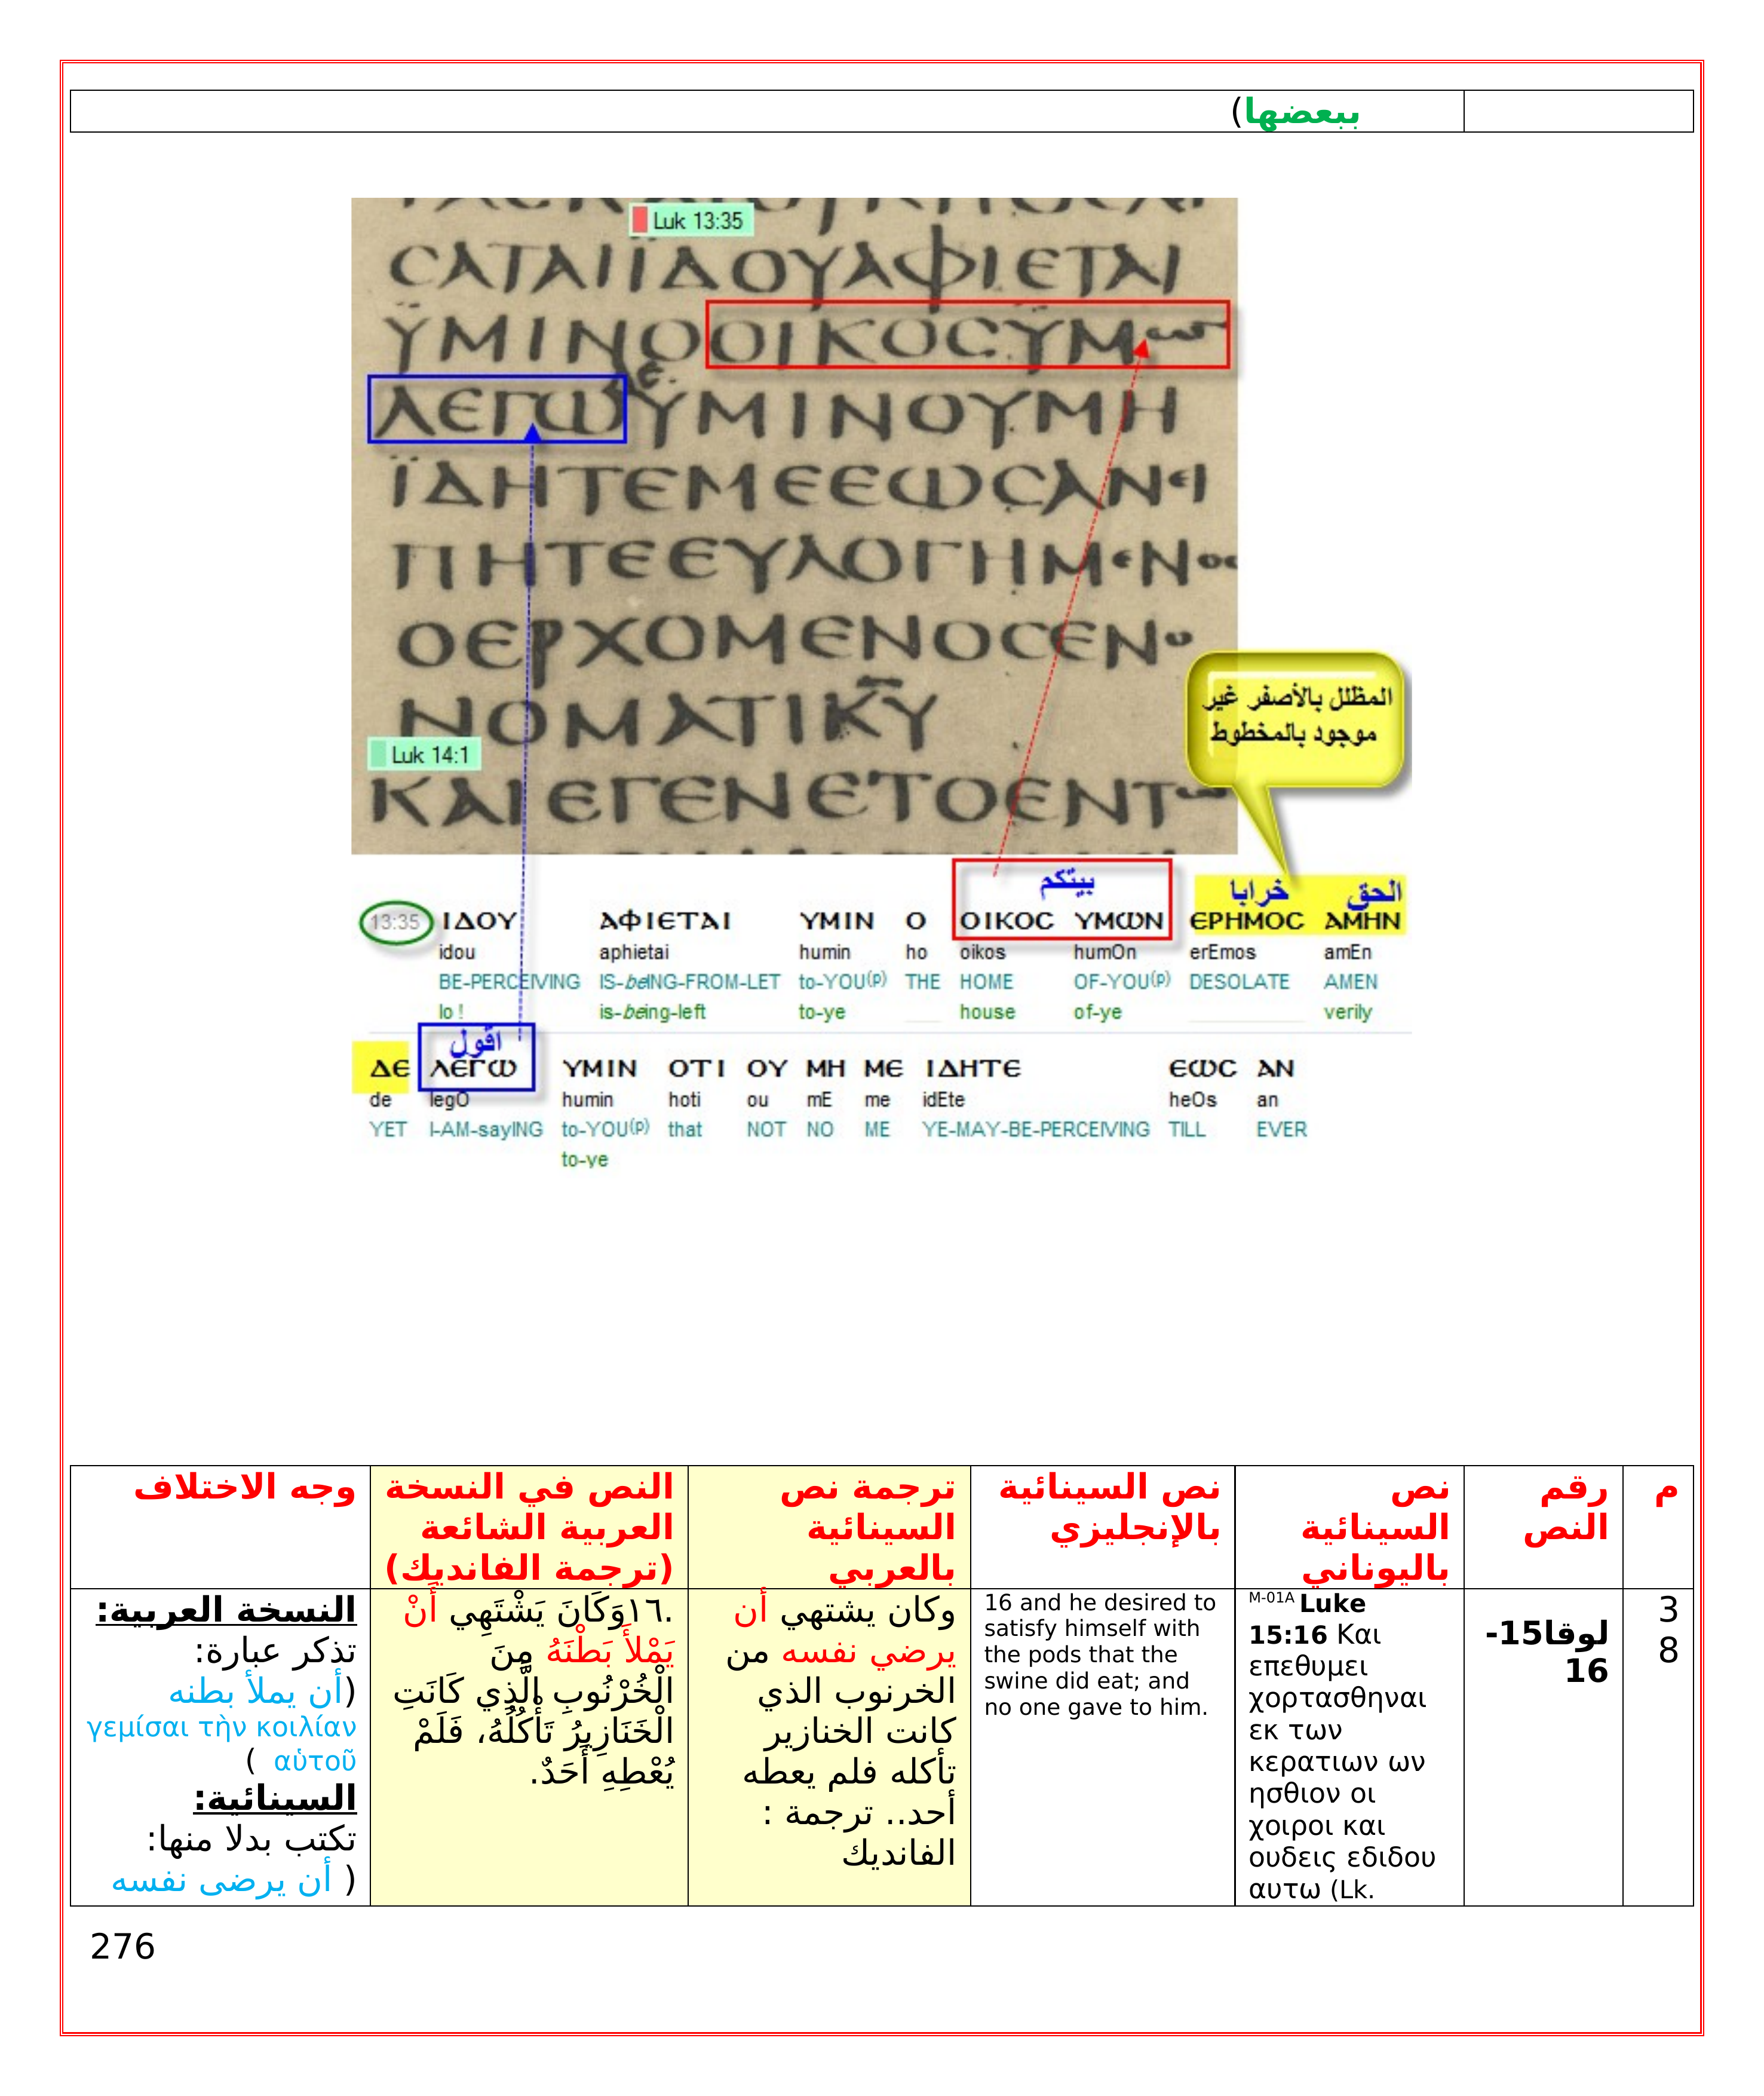 ببعضها)
Luk 13:35
CΑΤΑΙΪΔΟΥΑΦΙΕΤΑΙ
ΫΜΙΝΟΟΙΚΟCΫΜω
ΛΕΓωΫΜΙΝΟΥΜΗ
ΪΔΗΤΕΜΕΕωCΑΝΕΙ
ΠΗΤΕΕΥΛΟΓΗΜΕΝΟC
ΟΕΡΧΟΜΕΝΟCΕΝΟ
ΝΟΜΑΤΙΚΥ
Luk 14:1
ΚΑΙΕΓΕΝΕΤΟΕΝΤω
المظلل بالأصفر غير
موجود بالمخطوط
بيتكم خرابا الحق
13:35 ΙΔΟΥ ΑΦΙΕΤΑΙ ΥΜΙΝ Ο ΟΙΚΟC ΥΜωΝ ΕΡΗΜΟC ΑΜΗΝ
idou aphietai humin ho oikos humOn erEmos amEn
BE-PERCEIVING IS-beING-FROM-LET to-YOU(p) THE HOME OF-YOU(p) DESOLATE AMEN
lo ! is-being-left to-ye house of-ye verily
اقول
ΔΕ ΛΕΓω ΥΜΙΝ ΟΤΙ ΟΥ ΜΗ ΜΕ ΙΔΗΤΕ ΕωC ΑΝ
de legO humin hoti ou mE me idEte heOs an
YET I-AM-sayING to-YOU(p) that NOT NO ME YE-MAY-BE-PERCEIVING TILL EVER
to-ye
م
رقم
النص
نص
السينائية
باليوناني
نص السينائية
بالإنجليزي
ترجمة نص
السينائية
بالعربي
النص في النسخة
العربية الشائعة
(ترجمة الفانديك)
وجه الاختلاف
3
8
لوقا15-
16
M-01A Luke
15:16 Και
επεθυμει
χορτασθηναι
εκ των
κερατιων ων
ησθιον οι
χοιροι και
ουδεις εδιδου
αυτω (Lk.
16 and he desired to
satisfy himself with
the pods that the
swine did eat; and
no one gave to him.
وكان يشتهي أن
يرضي نفسه من
الخرنوب الذي
كانت الخنازير
تأكله فلم يعطه
أحد.. ترجمة :
الفانديك
.١٦وَكَانَ يَشْتَهِي أَنْ
يَمْلأَ بَطْنَهُ مِنَ
الْخُرْنُوبِ الَّذِي كَانَتِ
الْخَنَازِيرُ تَأْكُلُهُ، فَلَمْ
يُعْطِهِ أَحَدٌ.
النسخة العربية:
تذكر عبارة:
(أن يملأ بطنه
γεμίσαι τὴν κοιλίαν
αὐτοῦ )
السينائية:
تكتب بدلا منها:
( أن يرضى نفسه
276